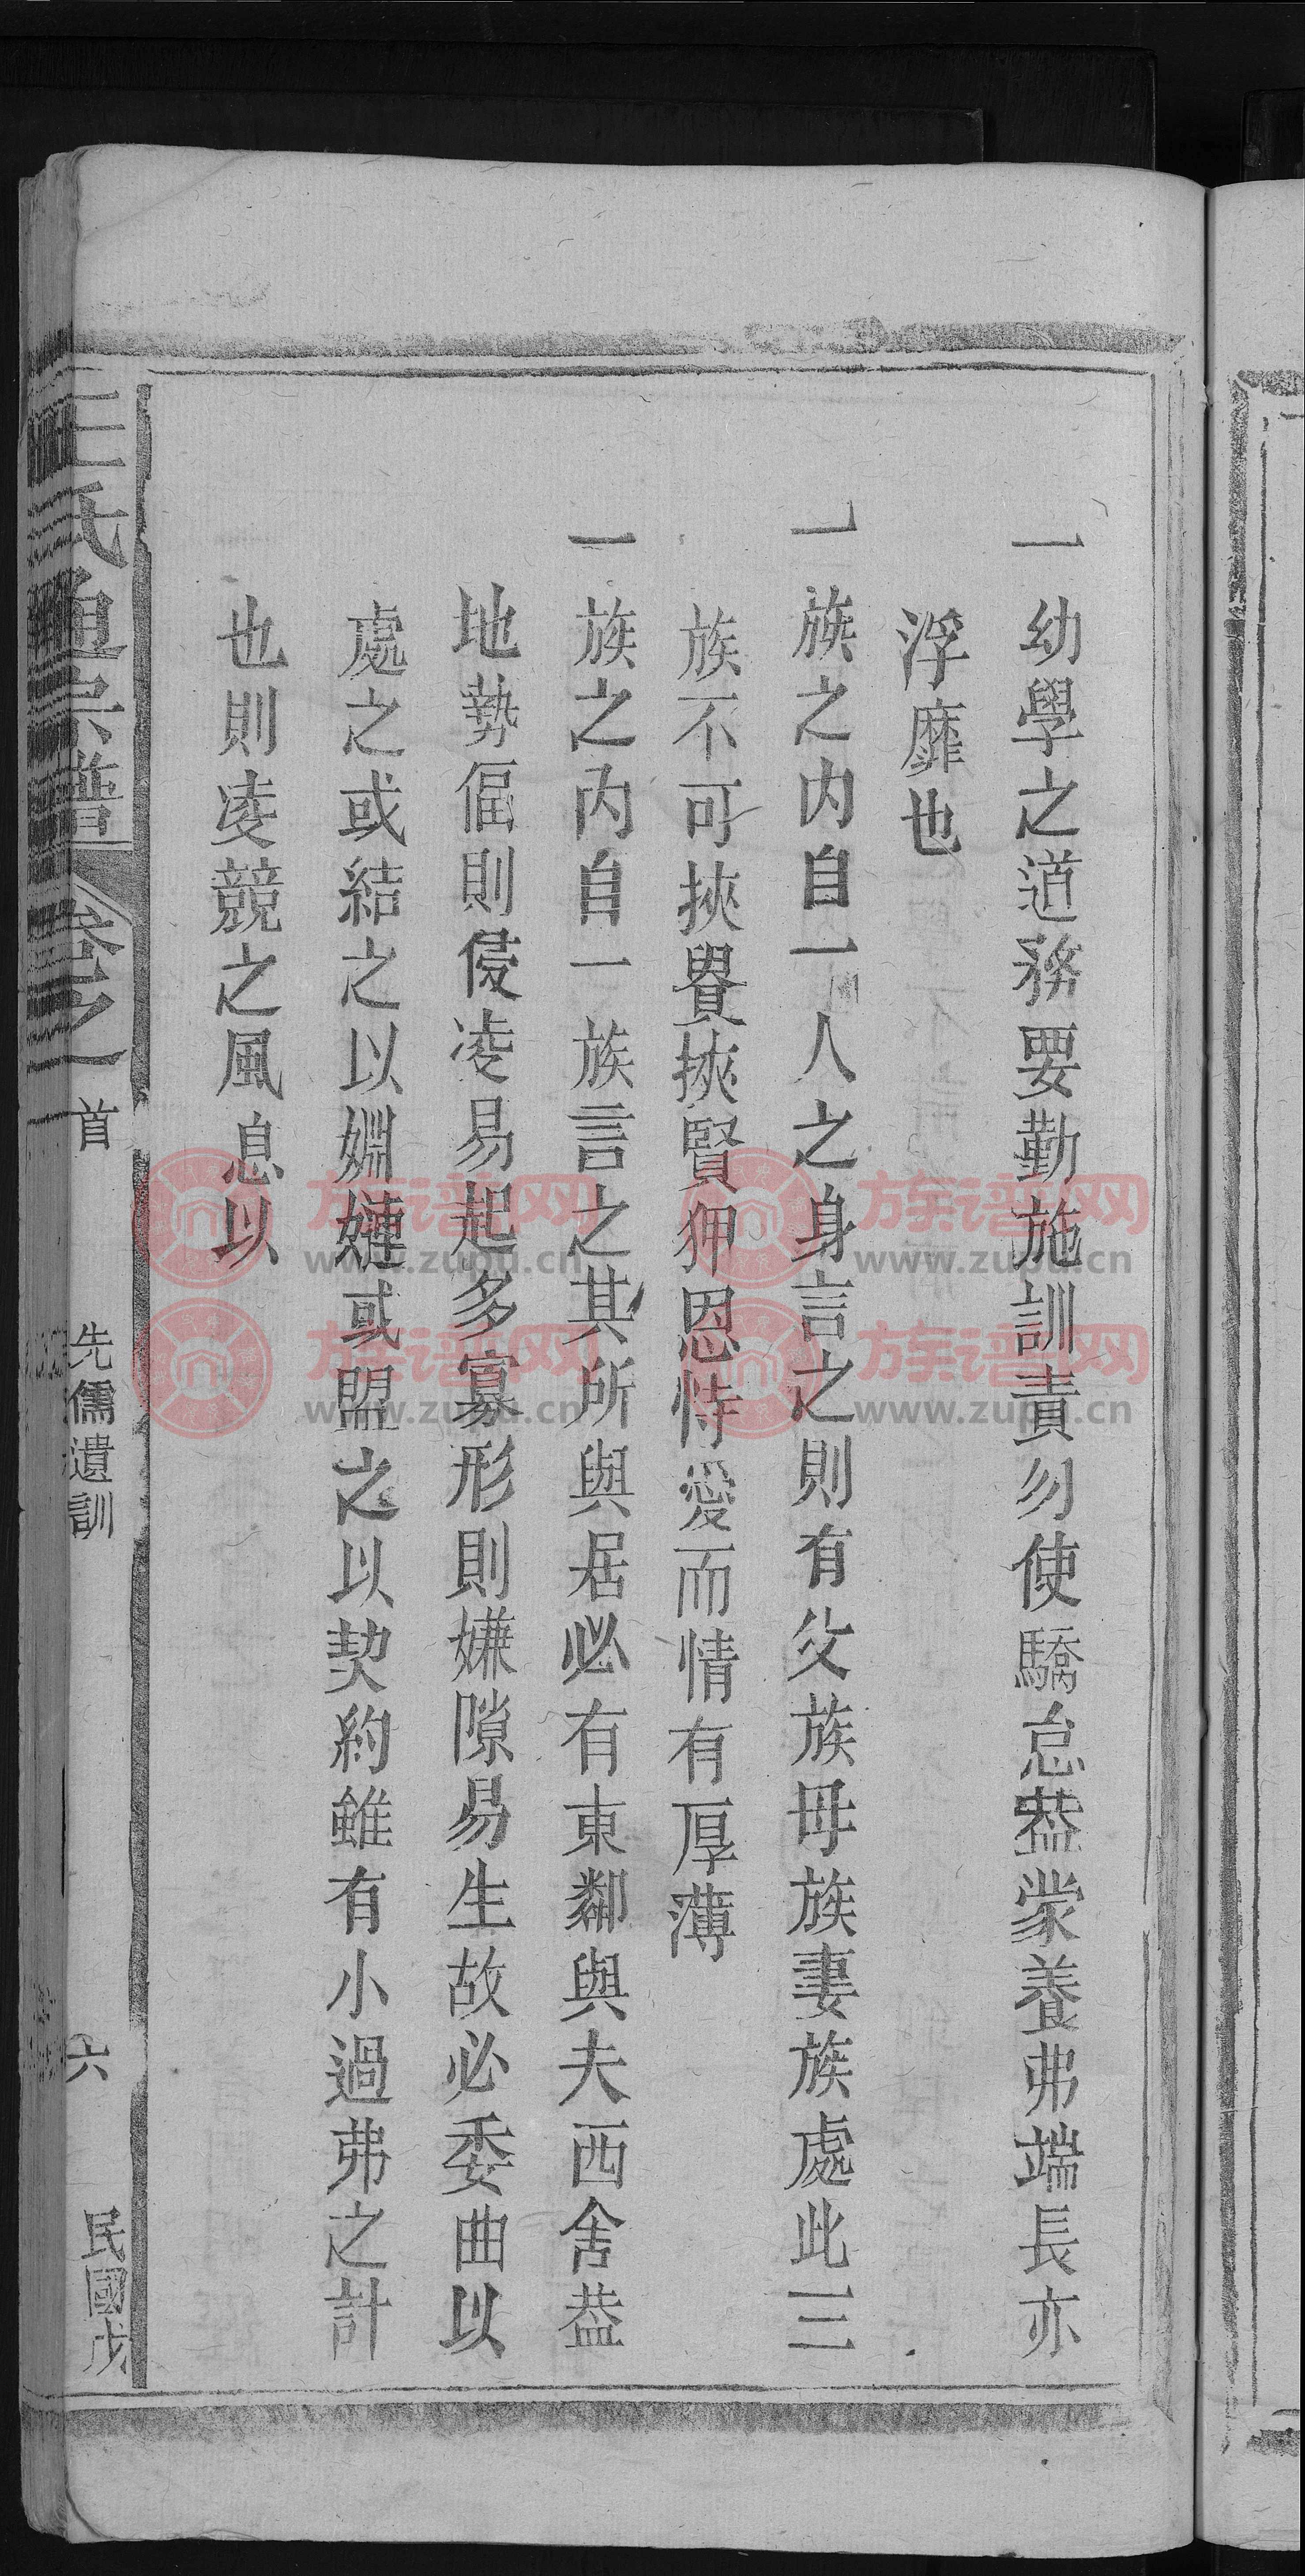 一幼學之道務要勤施訓責勿使驕怠葢蒙養弗端長亦
浮靡也
一族之内自一人之身言之則有父族母族妻族處此三
族不可挾貴挾賢狎恩恃愛而情有厚薄
一族之内自一族言之其所與居必有東鄰與夫西舍葢
地勢偪則侵凌易起多寡形則嫌隙易生故必委曲以
處之或結之以婣嫅或盟之以契約雖有小過弗之計
也則凌競之風息以
王氏通宗譜 卷之一 首 先儒遺訓 六 民國戊
族谱网 www.zupu.cn
族谱网 www.zupu.cn
族谱网 www.zupu.cn
族谱网 www.zupu.cn